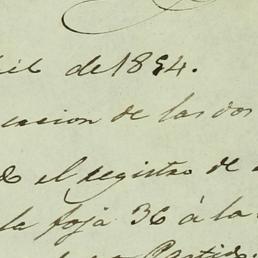 de 1894.
cacion de las dos
el registro de
la foja 36 á la
Partido